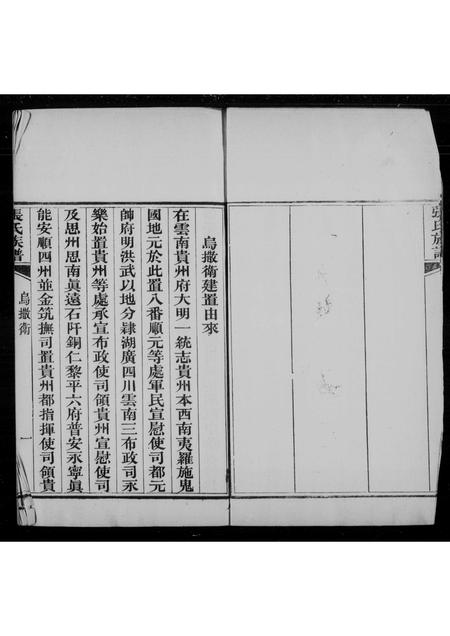 張氏族譜
烏撒衛建置由來
在雲南貴州府大明一統志貴州本西南夷羅施鬼
國地元於此置八番順元等處軍民宣慰使司都元
帥府明洪武以地分隸湖廣四川雲南三布政司永
樂始置貴州等處承宣布政使司領貴州宣慰使司
及思州思南鎮遠石阡銅仁黎平六府普安永寧鎮
能安順四州並金筑撫司置貴州都指揮使司領貴
張氏族譜
烏撒衛
一